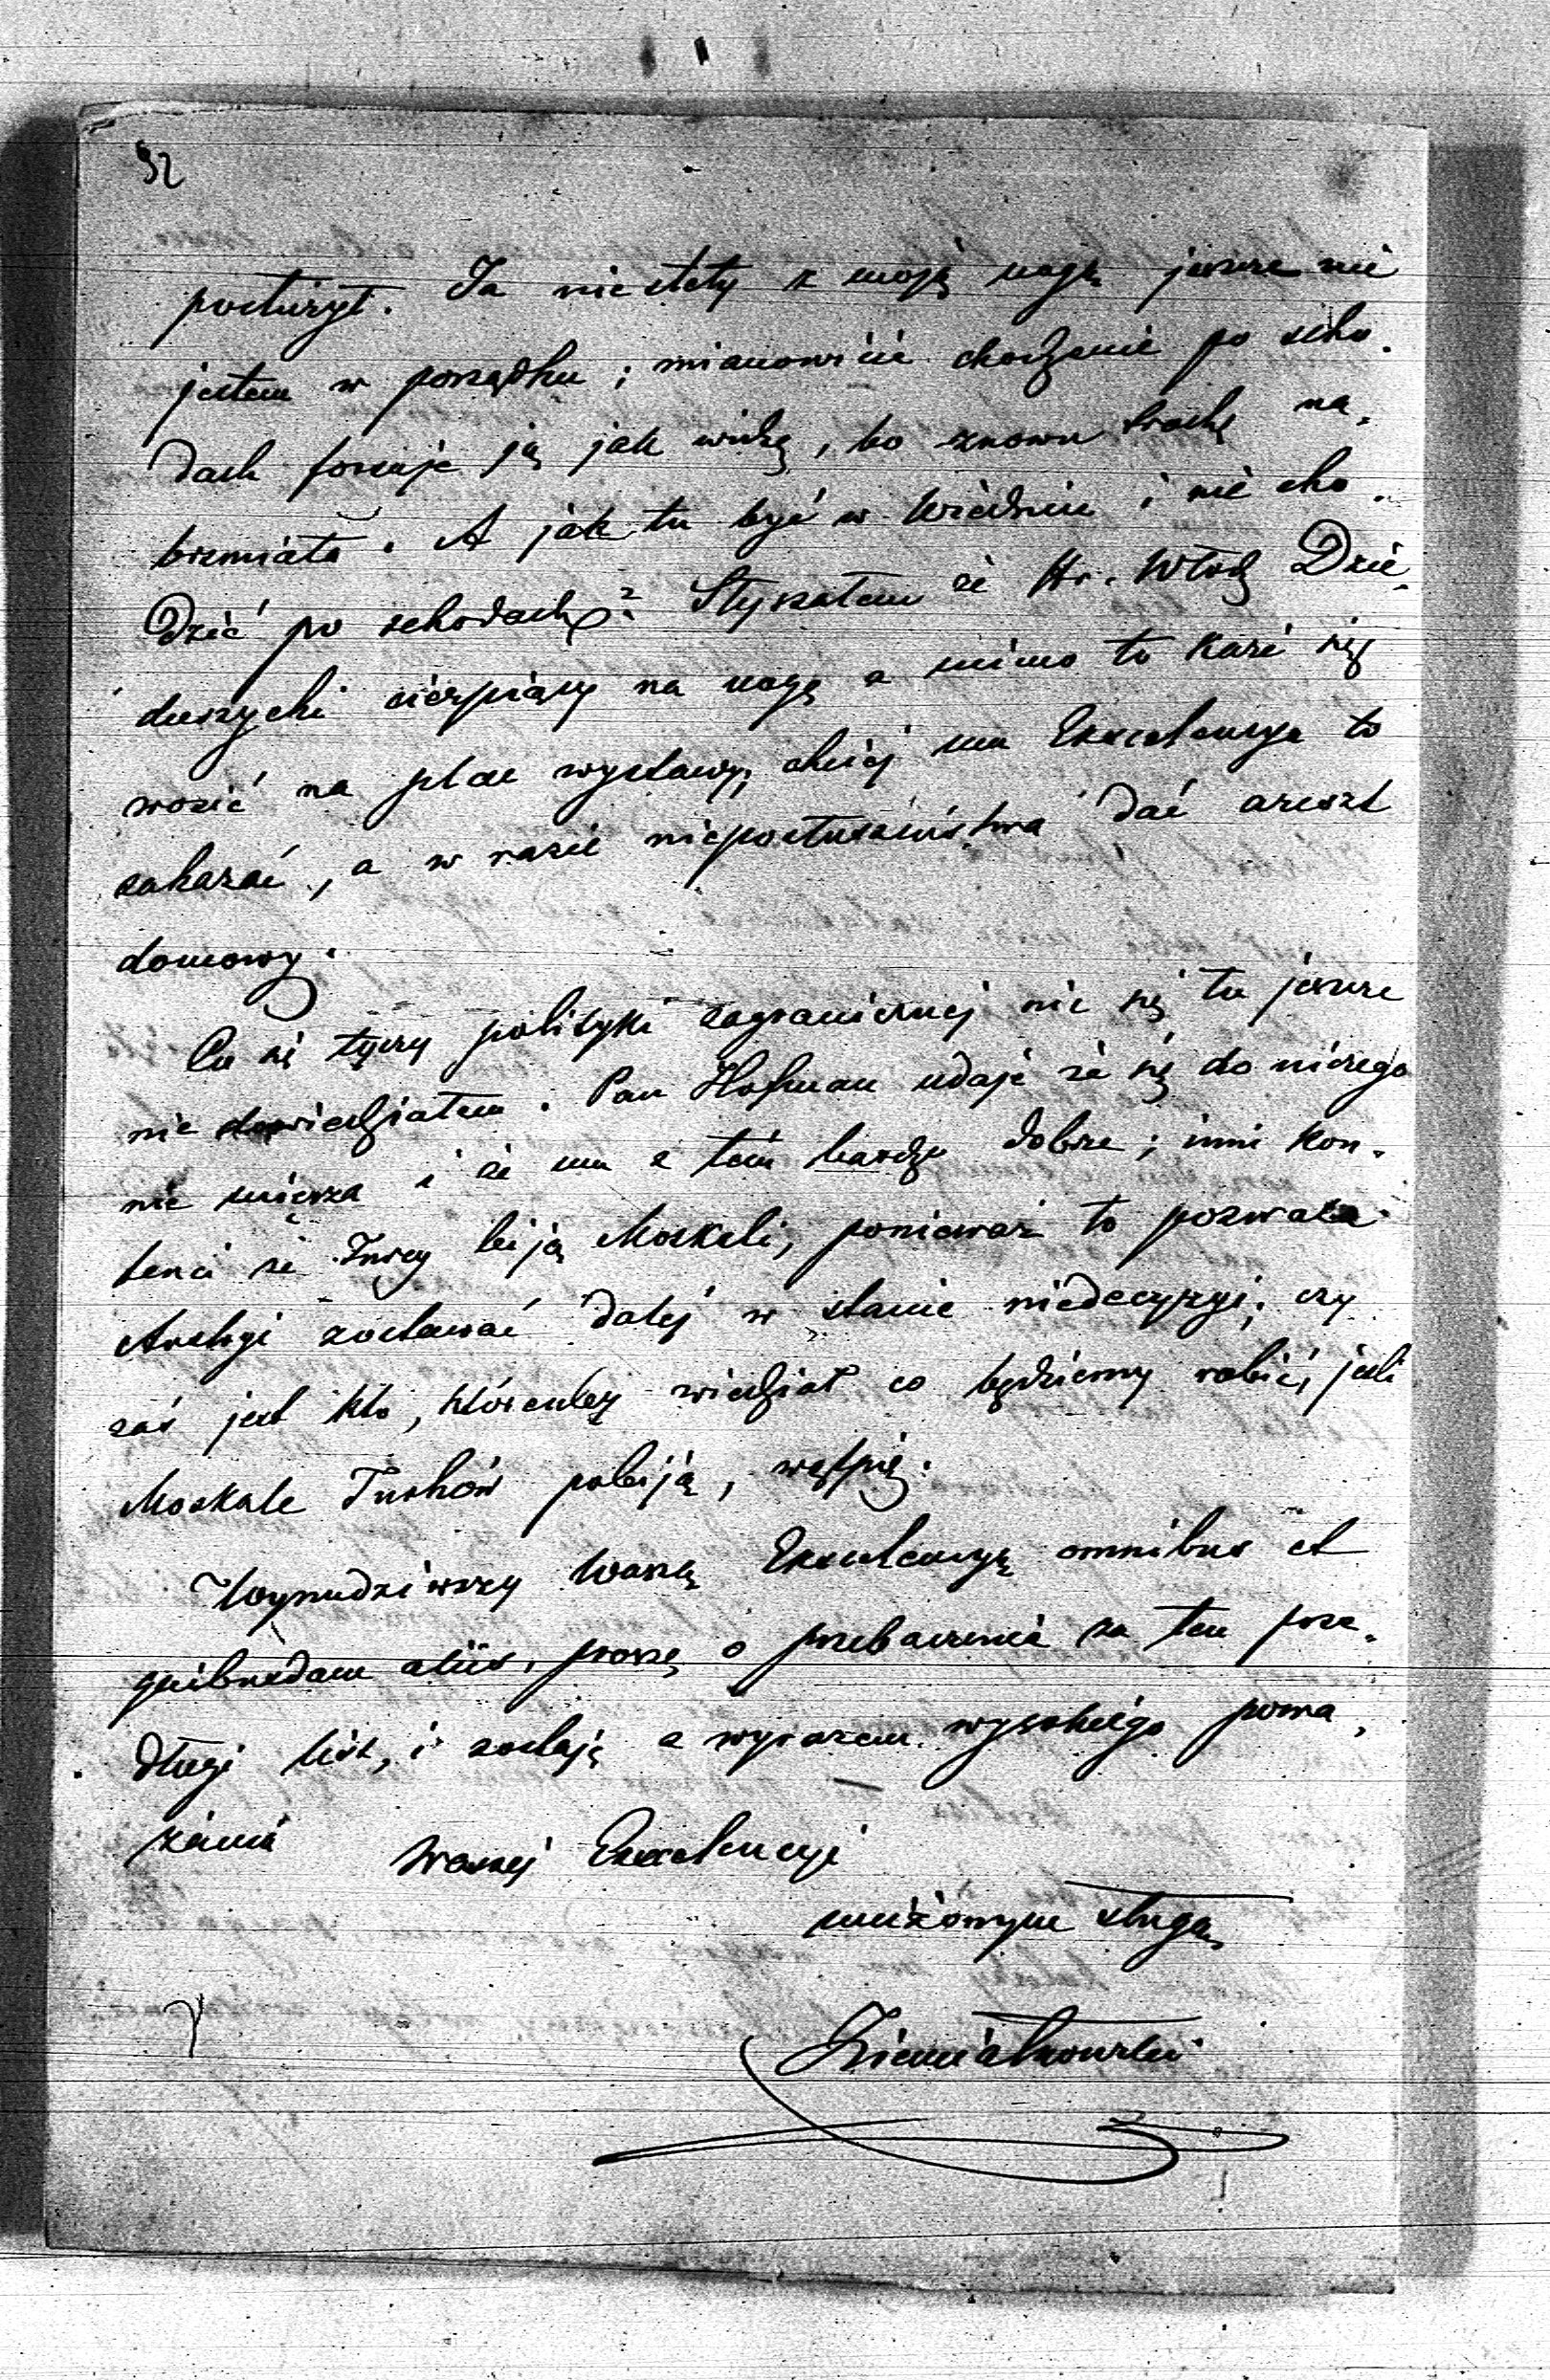 92
posłużył. Ja niestety z moją nogą jeszcze nie
jestem w porządku; mianowicie chodzenie po scho-
dach forsuje ją jak widzę, bo znowu trochę na-
brzmiała. A jak tu być w Wiedniu i nie cho-
dzić po schodach? Słyszałem że Hr. Włodz Dzie-
duszycki cierpiący na nogę a mimo to każe się
wozić na plac wystawy; chciej mu Excelencya to
zakazać, a w razie nieposłuszeństwa dać areszt
domowy.
Co się tyczy polityki zagranicznej nic się tu jeszcze
nie dowiedziałem. Pan Hofman udaje że się do niczego
nie miesza i że mu z tém bardzo dobrze; inni kon-
tenci że Turcy biją Moskali, ponieważ to pozwala
Austryi zostawać dalej w stanie niedecyzyi; czy
zaś jest kto, którenby wiedział co będziemy robić, jeśli
Moskale Turków pobiją, wątpię.
Wynudziwszy Waszą Excelencyę omnibus et
quibusdam aliis, proszę o przebaczenie za ten prze-
długi list, i zostaję z wyrazem wysokiego powa-
żania
Waszej Excelencyi
uniżonym sługą
Ziemiałkowski